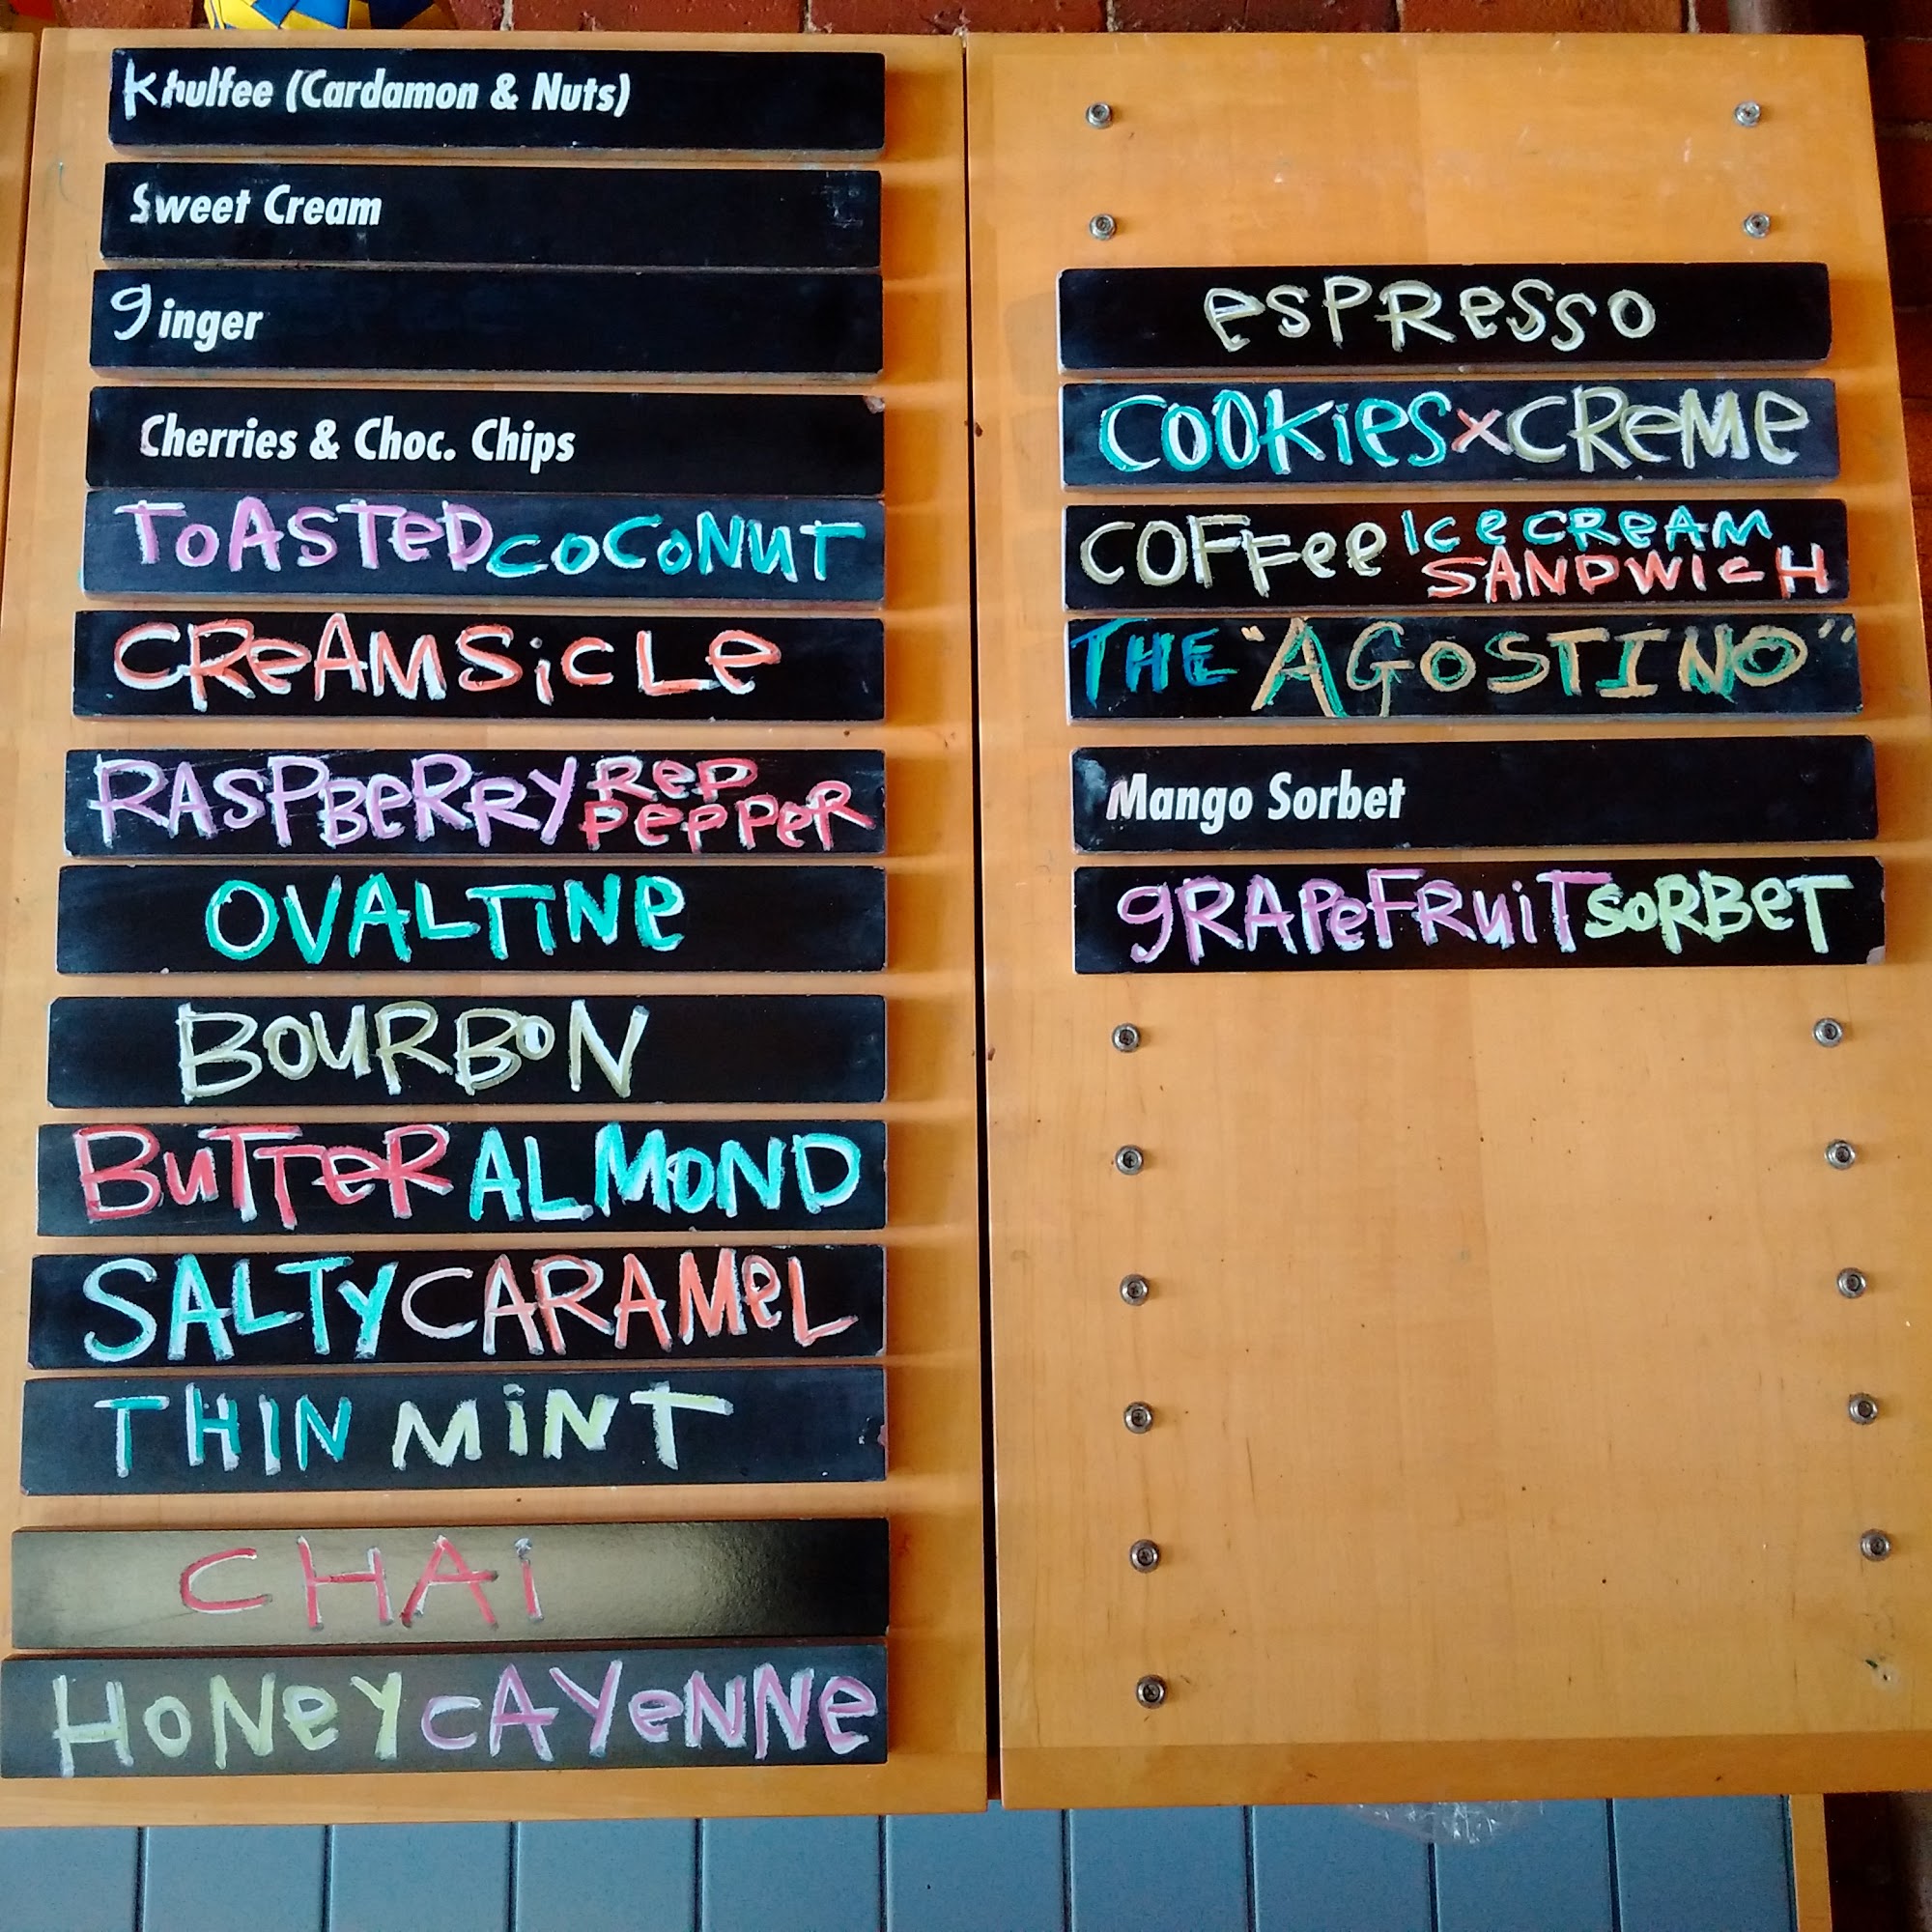 Khulfee (Cardamon & Nuts)
Sweet Cream
ginger
Cherries & Choc. Chips
TOASTED COCONUT
CReAMSiCLe
RASPBeRRY ReD
PePPeR
OVALTINe
BOURBON
BuTTeR ALMOND
SALTY CARAMeL
THIN MiNT
CHAi
HONeY cAYeNNe
esPResso
COOKies x CReMe
COFFee Ice CReAM
SANDWicH
THE "AGOSTINO"
Mango Sorbet
gRAPeFRuiT soRBeT